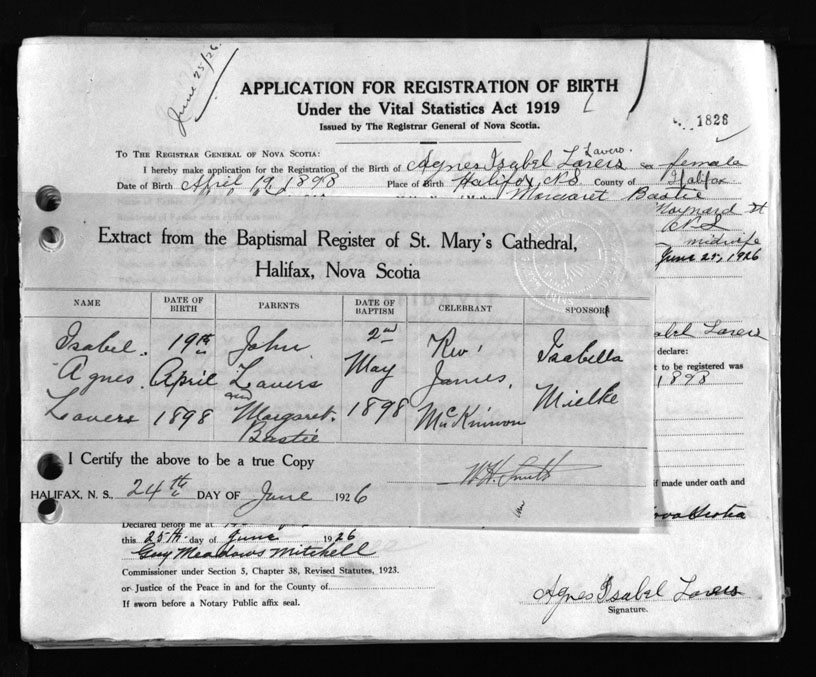 June 25/26
APPLICATION FOR REGISTRATION OF BIRTH
Under the Vital Statistics Act 1919
Issued by The Registrar General of Nova Scotia.
1826
TO THE REGISTRAR GENERAL OF NOVA SCOTIA:
Lavers.
I hereby make application for the Registration of the Birth of Agnes Isabel Lavers a female
Date of Birth April 1898 Place of Birth Halifax N.S. County of Halifax
Margaret Bastie
Maynard St
N.S.
midwife
June 25, 1926
Extract from the Baptismal Register of St. Mary's Cathedral,
Halifax, Nova Scotia
NAME DATE OF BIRTH PARENTS DATE OF BAPTISM CELEBRANT SPONSOR
Isabel. 19th John 2nd Rev. Isabella
Agnes. April Lavers May James, Mielke
Lavers 1898 and Margaret. 1898 McKinnon
Bastie
abel Lavers
declare:
t to be registered was
1898
I Certify the above to be a true Copy
W.H. Smith
HALIFAX, N. S., 24th DAY OF June 1926
if made under oath and
Nova Scotia
Declared before me at
this 25th day of June 1926
Guy Meadows Mitchell
Commissioner under Section 5, Chapter 38, Revised Statutes, 1923.
or Justice of the Peace in and for the County of
If sworn before a Notary Public affix seal.
Agnes Isabel Lavers
Signature.